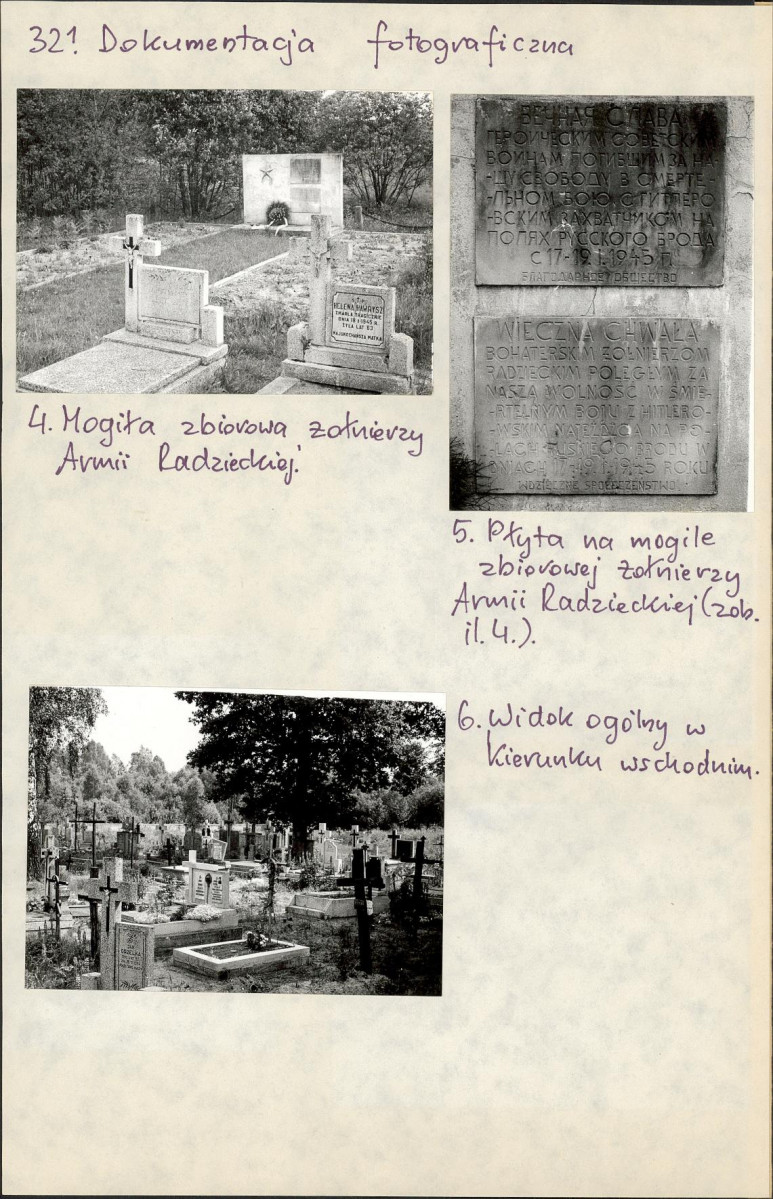 32¹. Dokumentacja fotograficzna
HELENA HAWRYSZ
ZMARŁA TRAGICZNIE
DNIA 18 I 1945 R.
ŻYŁA LAT 83
4. Mogiła zbiorowa żołnierzy
Armii Radzieckiej.
ВЕЧНАЯ СЛАВА
ГЕРОИЧЕСКИМ СОВЕТСКИМ
ВОИНАМ ПОГИБШИМ ЗА НА-
-ШУ СВОБОДУ В СМЕРТЕ-
-ЛЬНОМ БОЮ С ГИТЛЕРО
-ВСКИМ ЗАХВАТЧИКОМ НА
ПОЛЯХ РУССКОГО БРОДА
С 17-19.I.1945 Г.
БЛАГОДАРНОЕ ОБЩЕСТВО
WIECZNA CHWAŁA
BOHATERSKIM ŻOŁNIERZOM
RADZIECKIM POLEGŁYM ZA
NASZĄ WOLNOŚĆ W ŚMIE-
-RTELNYM BOJU Z HITLERO-
-WSKIM NAJEŹDŹCĄ NA PO-
-LACH RUSKIEGO BRODU W
DNIACH 17-19.I.1945 ROKU
WDZIĘCZNE SPOŁECZEŃSTWO
5. Płyta na mogile
zbiorowej żołnierzy
Armii Radzieckiej (zob.
il. 4.).
6. Widok ogólny w
kierunku wschodnim.